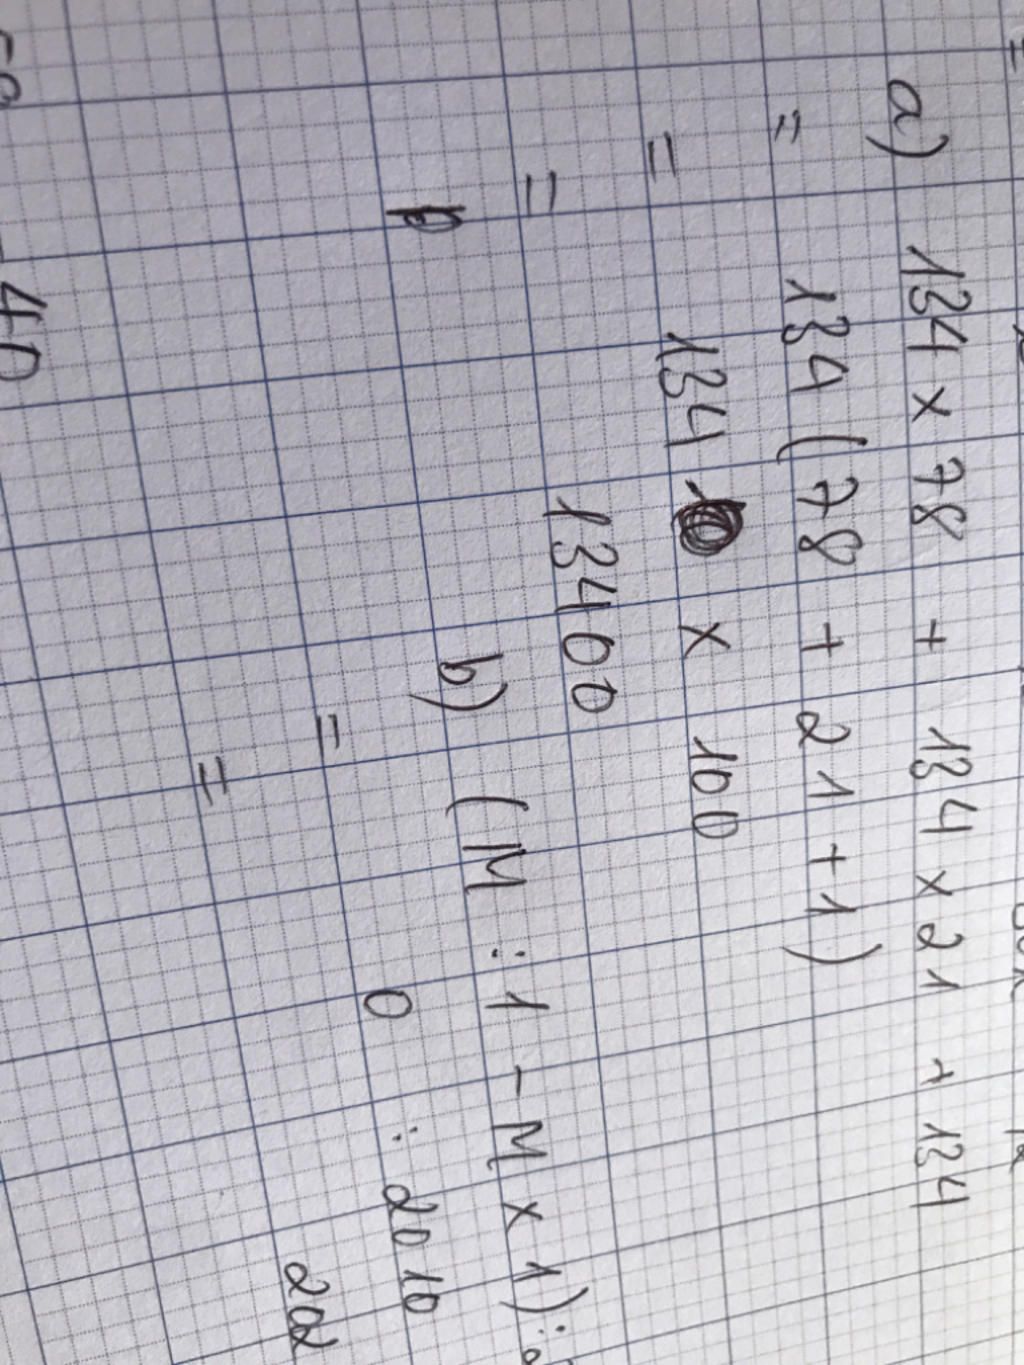 a) 134 x 78 + 134 x 21 + 134
= 134 (78 + 21 + 1)
= 134 x 100
= 13400
b) (M : 1 - M x 1) :
= 0 : 2010
=
40